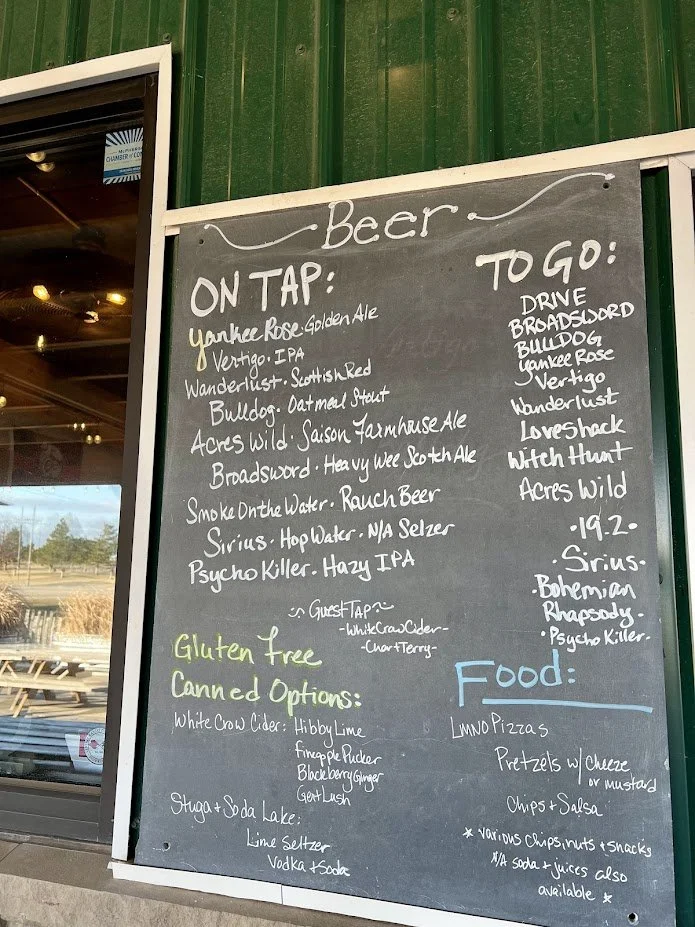 McPherson
CHAMBER of CO
Beer
ON TAP:
Yankee Rose · Golden Ale
Vertigo · IPA
Wanderlust · Scottish Red
Bulldog · Oatmeal Stout
Acres Wild · Saison Farmhouse Ale
Broadsword · Heavy Wee Scotch Ale
Smoke On the Water · Rauch Beer
Sirius · Hop Water · N/A Selzer
Psycho Killer · Hazy IPA
~ Guest TAP ~
-White Crow Cider-
-Char+Terry-
Gluten Free
Canned Options:
White Crow Cider: Hibby Lime
Pineapple Pucker
Blackberry Ginger
Get Lush
Stuga + Soda Lake:
Lime Seltzer
Vodka + Soda
TO GO:
DRIVE
BROADSWORD
BULLDOG
Yankee Rose
Vertigo
Wanderlust
Loveshack
Witch Hunt
Acres Wild
·19.2·
·Sirius·
·Bohemian
Rhapsody·
·Psycho Killer·
Food:
LMNO Pizzas
Pretzels w/ Cheese
or mustard
Chips + Salsa
* various chips, nuts + snacks
N/A soda + juices also
available *